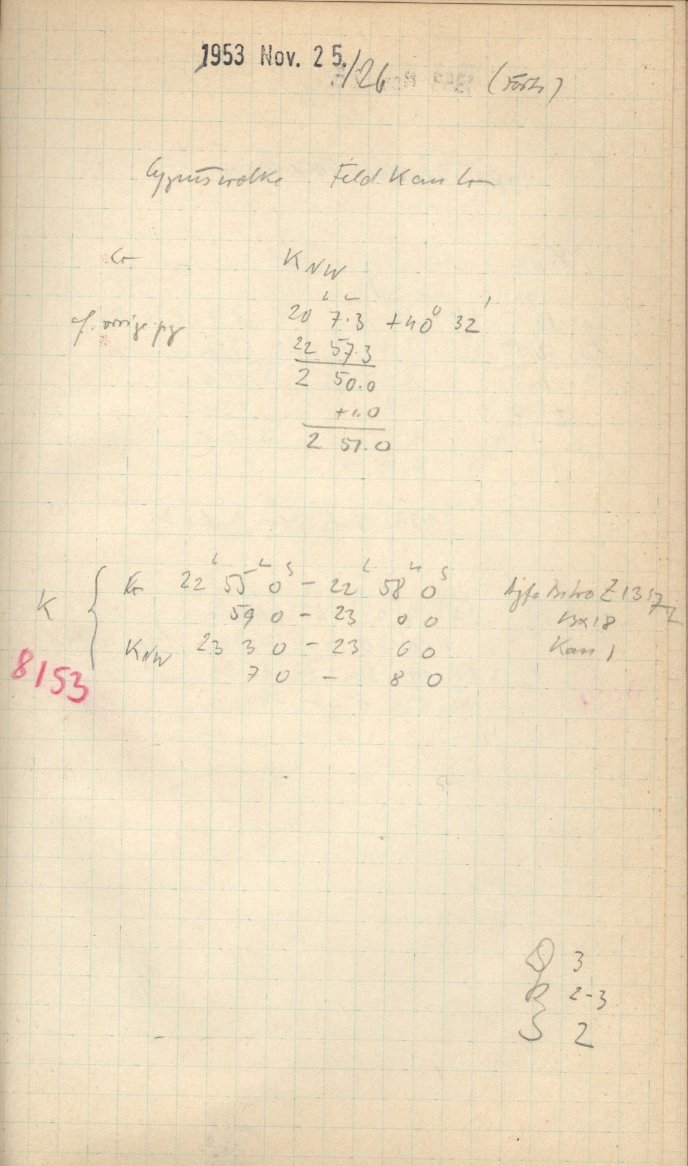 1953 Nov. 25./26 (Forts)
Cygnuswolke Feld Kam Gr
Gr KNW
20 7.3 +40° 32'
22 57.3
2 50.0
+1.0
2 51.0
Gr 22 55 0 – 22 58 0 Agfa Astro Z
59 0 – 23 0 0 13x18
K KNW 23 3 0 – 23 6 0 Kam 1
7 0 – 8 0
8153
Q 3
R 2-3
S 2